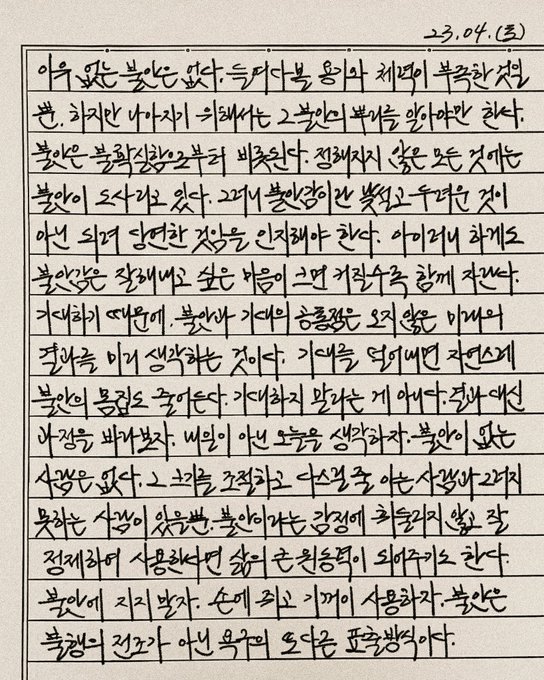 23.04.(토)
이유 없는 불안은 없다. 들여다볼 용기와 체력이 부족한 것일
뿐. 하지만 나아지기 위해서는 그 불안의 뿌리를 알아야만 한다.
불안은 불확실함으로부터 비롯된다. 정해지지 않은 모든 것에는
불안이 도사리고 있다. 그러니 불안감이란 낯설고 두려운 것이
아닌 되려 당연한 것임을 인지해야 한다. 아이러니 하게도
불안감은 잘해내고 싶은 마음이 크면 커질수록 함께 자란다.
기대하기 때문에. 불안과 기대의 공통점은 오지 않은 미래의
결과를 미리 생각하는 것이다. 기대를 덜어내면 자연스레
불안의 몸집도 줄어든다. 기대하지 말라는 게 아니다. 결과 대신
과정을 바라보자. 내일이 아닌 오늘을 생각하자. 불안이 없는
사람은 없다. 그 크기를 조절하고 다스릴 줄 아는 사람과 그러지
못하는 사람이 있을 뿐. 불안이라는 감정에 휘둘리지 않고 잘
정제하여 사용한다면 삶의 큰 원동력이 되어주기도 한다.
불안에 지지 말자. 손에 쥐고 기꺼이 사용하자. 불안은
불행의 전조가 아닌 욕구의 또다른 표출방식이다.